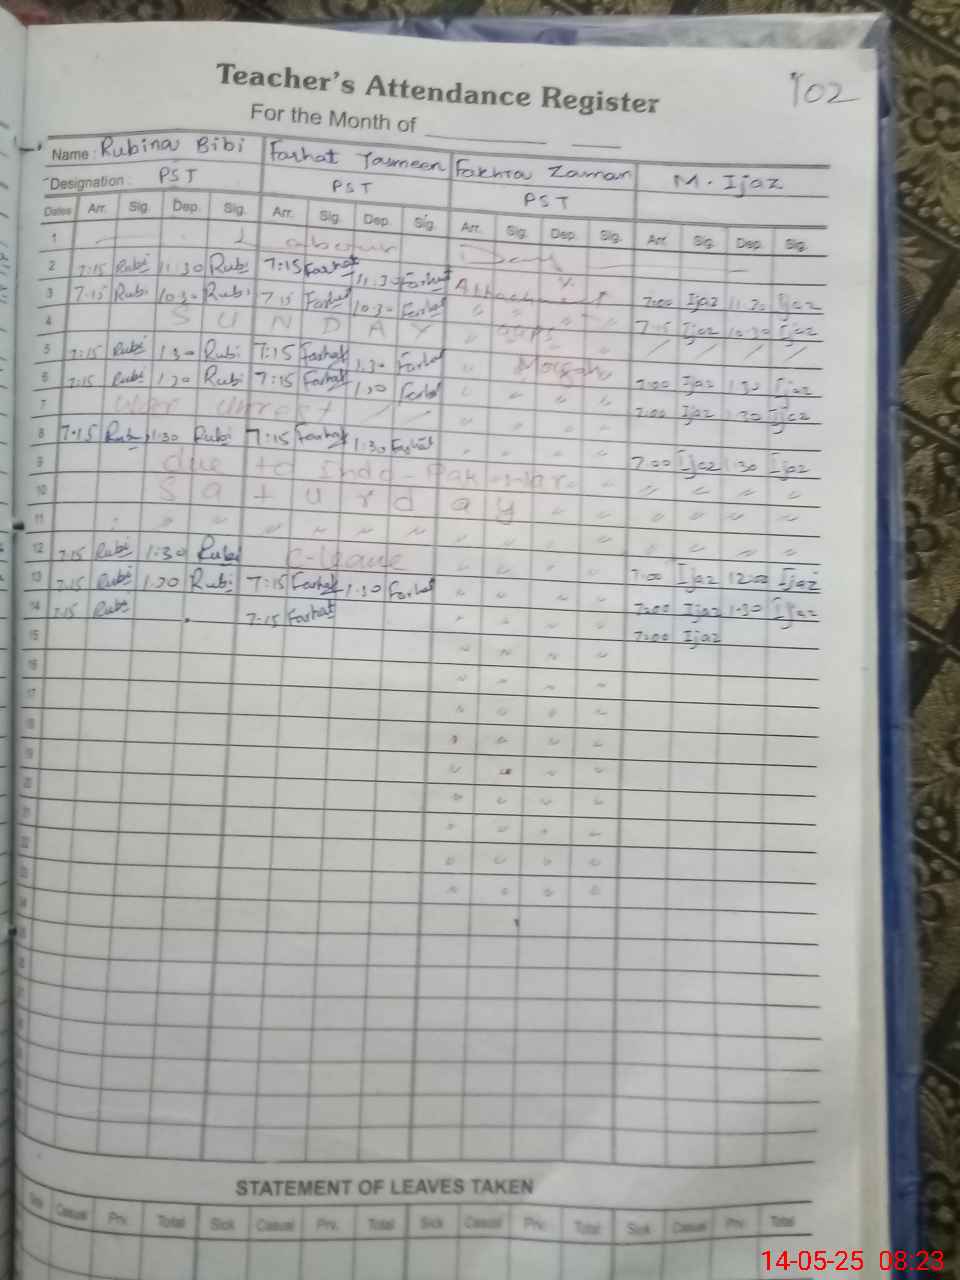 Teacher's Attendance Register
102
For the Month of
Name: Rubina Bibi Farhat Yasmeen Fakhra Zaman M. Ijaz
Designation: PST PST PST
Dates Arr. Sig. Dep. Sig. Arr. Sig. Dep. Sig. Arr. Sig. Dep. Sig. Arr. Sig. Dep. Sig.
1 Labour Day
2 7:15 Rubi 11:30 Rubi 7:15 Farhat 11:30 Farhat Attachment 7:00 Ijaz 11:30 Ijaz
3 7:15 Rubi 10:30 Rubi 7:15 Farhat 10:30 Farhat " " " " 7:15 Ijaz 10:30 Ijaz
4 SUNDAY " GGPS " " / / / /
5 7:15 Rubi 1:30 Rubi 7:15 Farhat 1:30 Farhat " 7:00 Ijaz 1:30 Ijaz
6 7:15 Rubi 1:30 Rubi 7:15 Farhat 1:30 Farhat " " " " 7:00 Ijaz 1:30 Ijaz
7 War Unrest / / " " " "
8 7:15 Rubi 1:30 Rubi 7:15 Farhat 1:30 Farhat " " " " 7:00 Ijaz 1:30 Ijaz
9 due to Indo-Pak-war " " " " "
10 Saturday " " " " " "
11 " " " " " " " " " " " " " "
12 7:15 Rubi 1:30 Rubi C-leave " " " " 7:00 Ijaz 12:00 Ijaz
13 7:15 Rubi 1:30 Rubi 7:15 Farhat 1:30 Farhat " " " " 7:00 Ijaz 1:30 Ijaz
14 7:15 Rubi 7:15 Farhat " " " " 7:00 Ijaz
15 " " " "
16 " " " "
17 " " " "
18 " " " "
19 " " " "
20 " " " "
21 " " " "
22 " " " "
23 " " " "
STATEMENT OF LEAVES TAKEN
Sick Casual Prv. Total Sick Casual Prv. Total Sick Casual Prv. Total Sick Casual Prv. Total
14-05-25 08:23